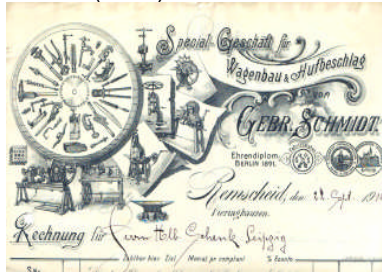 Special-Geschäft für
Wagenbau & Hufbeschlag
von
GEBR. SCHMIDT.
Ehrendiplom
BERLIN 1891.
Remscheid, den 22. Sept. 19
Vieringhausen.
Rechnung für Herrn Alb. Schenk Leipzig
Ziel Monat pr comptant % Sconto